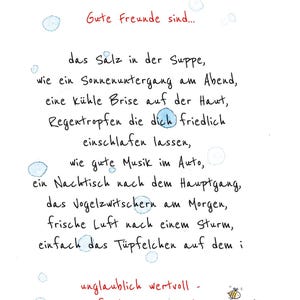 Gute Freunde sind...
das Salz in der Suppe,
wie ein Sonnenuntergang am Abend,
eine kühle Brise auf der Haut,
Regentropfen die dich friedlich
einschlafen lassen,
wie gute Musik im Auto,
ein Nachtisch nach dem Hauptgang,
das Vogelzwitschern am Morgen,
frische Luft nach einem Sturm,
einfach das Tüpfelchen auf dem i
unglaublich wertvoll -